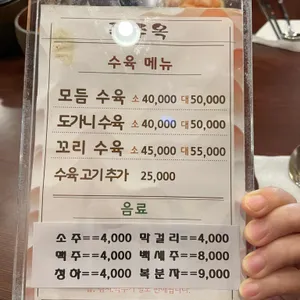 수육 메뉴
모듬 수육 소 40,000 대 50,000
도가니 수육 소 40,000 대 50,000
꼬리 수육 소 45,000 대 55,000
수육 고기 추가 25,000
음료
소주==4,000 막걸리==4,000
맥주==4,000 백세주==8,000
청하==4,000 복분자==9,000